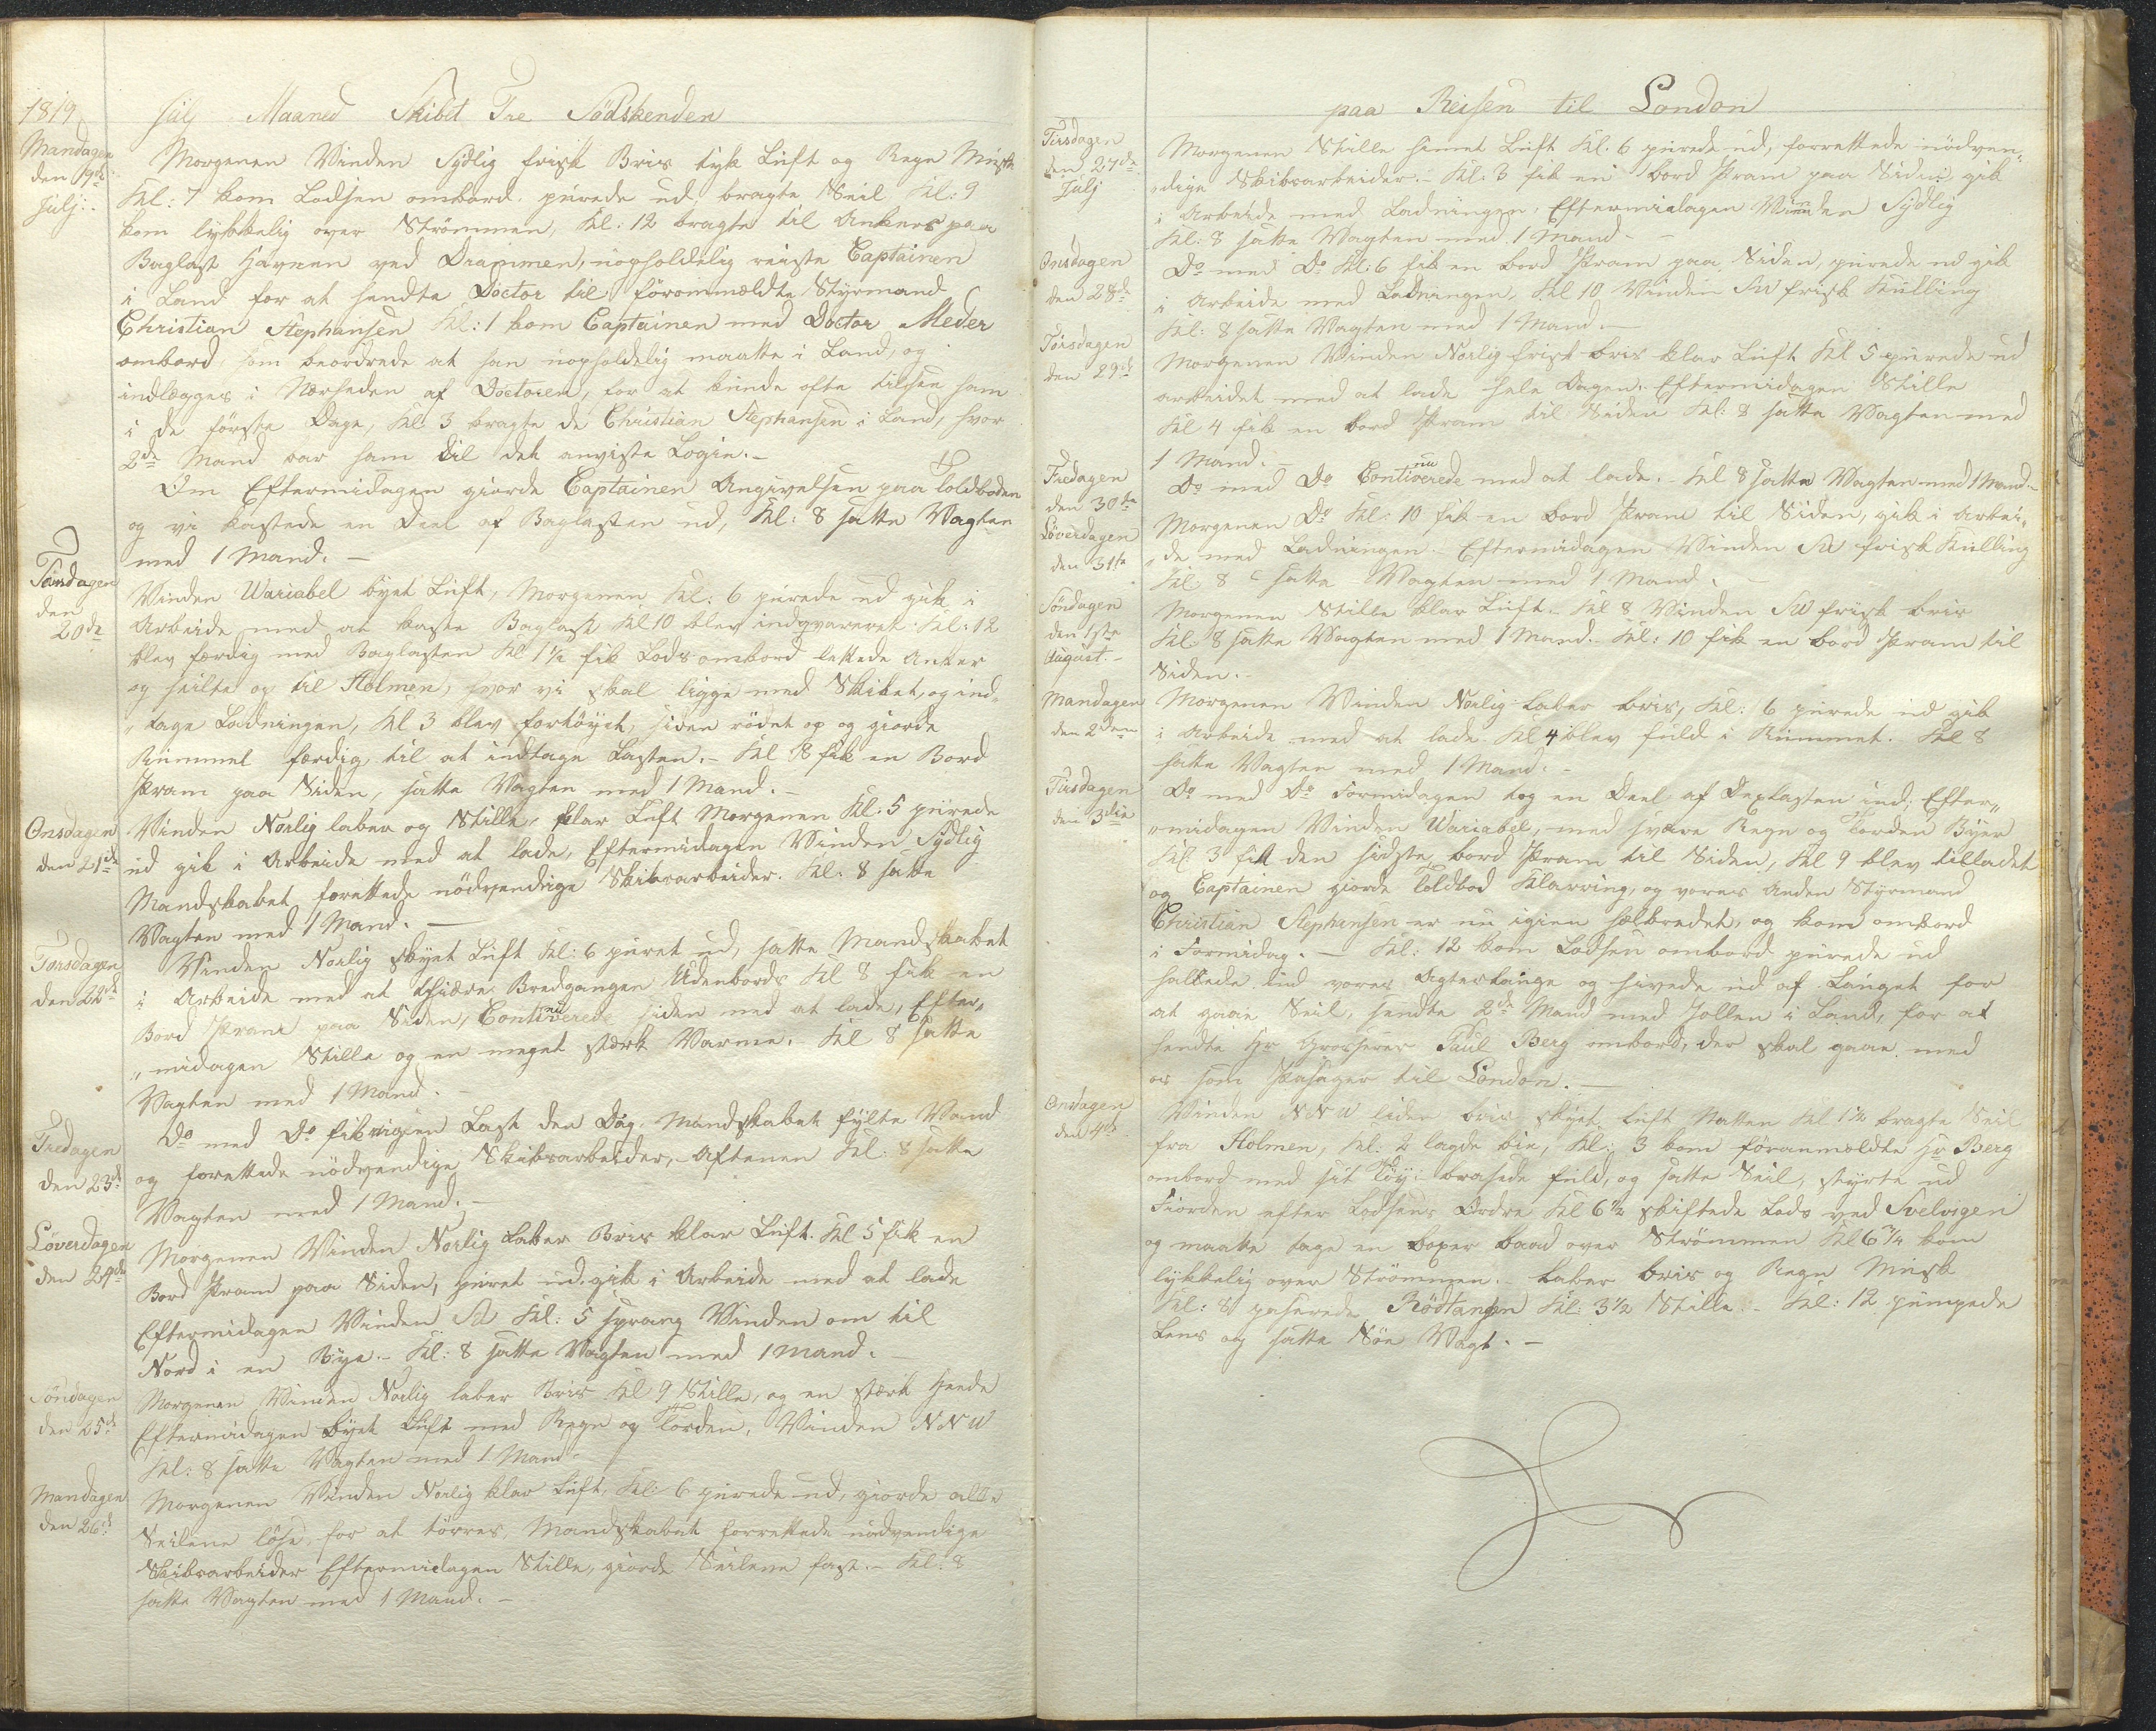 1819 Julj Maaned Skibet Tre Södskenden
Mandagen den 19de Julj:
Morgenen Vinden Sydlig frisk Bris tyk Luft og Regn Musk
Kl: 7 kom Lodsen ombord. purede ud, bragte Seil Kl: 9
kom lykkelig over Strömmen, Kl: 12 bragte til Ankers paa
Baglast Havnen ved Drammen, uopholdelig reiste Captainen
i Land for at hendte Doctor til förommældte Styrmand
Christian Stephansen Kl: 1 kom Captainen med Doctor Meder
ombord, som beordrede at han uopholdelig maatte i Land, og
indlægges i Nærheden af Doctoren, for at kunde ofte tilsee ham
i de förste Dage, Kl: 3 bragte de Christian Stephansen i Land, hvor
2de Mand var ham til det anviste Logie. -
Om Eftermidagen giorde Captainen Angivelsen paa Toldboden
og vi kastede en Deel af Baglasten ud, Kl: 8 satte Vagten
med 1 Mand. -
Tirsdagen den 20de
Vinden Wariabel byet Luft, Morgenen Kl: 6 purede ud gik i
Arbeide med at kaste Baglast Kl 10 blev indqvareret. Kl: 12
blev færdig med Baglasten Kl 1½ fik Lods ombord lettede Anker
og seilte op til Holmen, hvor vi skal ligge med Skibet, og ind„
„tage Ladningen, Kl 3 blev fortöyet, siden rödet op og giorde
Rummet færdig til at indtage Lasten. - Kl 8 fik en Bord
Pram paa Siden, satte Vagten med 1 Mand. -
Onsdagen den 21de
Vinden Norlig laber og Stille, klar Luft Morgenen Kl: 5 purede
ud gik i Arbeide med at lade, Eftermidagen Vinden Sydlig
Mandskabet forettede nödvendige Skibsarbeider. Kl: 8 satte
Vagten med 1 Mand. -
Torsdagen den 22de
Vinden Norlig skyet Luft Kl: 6 puret ud, satte Mandskabet
i Arbeide med at thiære Bredgangen Udenbords Kl 8 fik en
Bord Pram paa Siden, Continuerede siden med at lade, Efter„
„midagen Stille og en meget stærk Varme. - Kl 8 satte
Vagten med 1 Mand. -
Fredagen den 23de
Do med Do fik ingen Last den Dag. Mandskabet fylte Vand
og forettede nödvendige Skibsarbeider, - Aftenen Kl: 8 satte
Vagten med 1 Mand. -
Löverdagen den 24de
Morgenen Vinden Norlig Laber Bris klar Luft. Kl 5 fik en
Bord Pram paa Siden, puret ud. gik i Arbeide med at lade
Eftermidagen Vinden Kl: 5 sprang Vinden om til
Nord i en Bye. - Kl: 8 satte Vagten med 1 Mand. -
Söndagen den 25de
Morgenen Vinden Norlig laber Bris Kl 9 Stille, og en stærk Heede
Eftermidagen byet Luft med Regn og Torden, Vinden NNW
Kl: 8 satte Vagten med 1 Mand -
Mandagen den 26de
Morgenen Vinden Norlig klar Luft, Kl: 6 purede ud, giorde alle
Seilene löse, for at törres, Mandskabet forrettede nödvendige
Skibsarbeider Eftermidagen Stille, giorde Seilene fast. - Kl: 8
satte Vagten med 1 Mand. -
paa Reisen til London
Tirsdagen den 27de Julj
Morgenen Stille simet Luft Kl: 6 purede ud, forrettede nödven„
„dige Skibsarbeider. - Kl: 3 fik en bord Pram paa Siden gik
i Arbeide med Ladningen, Eftermidagen Vinden Sydlig
Kl: 8 satte Vagten med 1 Mand -
Onsdagen den 28de
Do med Do Kl: 6 fik en bord Pram paa Siden, purede ud gik
i Arbeide med Ladningen, Kl 10 Vinden SW frisk Kulling
Kl: 8 satte Vagten med 1 Mand. -
Torsdagen den 29de
Morgenen Vinden Norlig frisk bris klar Luft Kl 5 purede ud
arbeidet med at lade hele Dagen. Eftermidagen Stille
Kl 4 fik en bord Pram til Siden Kl: 8 satte Vagten med
1 Mand. -
Fredagen den 30te
Do med Do Continuerede med at lade. - Kl 8 satte Vagten med 1 Mand. -
Löverdagen den 31te
Morgenen Do Kl: 10 fik en bord Pram til Siden, gik i Arbei„
„de med Ladningen. Eftermidagen Vinden frisk Kulling
Kl: 8 satte Vagten med 1 Mand. -
Söndagen den 1ste August. -
Morgenen Stille klar Luft. Kl 8 Vinden SW frisk bris
Kl: 8 satte Vagten med 1 Mand. Kl: 10 fik en bord Pram til
Siden. -
Mandagen den 2den
Morgenen Vinden Norlig Laber bris, Kl: 6 purede ud gik
i Arbeide med at lade Kl 4 blev fuld i Rummet. Kl 8
satte Vagten med 1 Mand. -
Tirsdagen den 3die
Do med Do Formidagen tog en Deel af Dexlasten ind, Efter„
„midagen Vinden Wariabel, med svære Regn og Torden Byer
Kl 3 fik den sidste bord Pram til Siden, Kl 9 blev tilladet
og Captainen giorde Toldbod Klarring, og vores Anden Styrmand
Christian Stephensen er nu igien helbredet, og kom ombord
i Formidag. - Kl: 12 kom Lodsen ombord purede ud
hallede ind vores Agtertouge og hivede ind af Langet for
at gaae Seil, sendte 2de Mand med Jollen i Land, for at
hendte Hr Grosserer Paul Berg ombord, der skal gaae med
os som Pasager til London. -
Onsdagen den 4de
Vinden NNW liden bris skyet Luft Natten Kl 1½ bragte Seil
fra Holmen, Kl: 2 lagde bie, Kl: 3 kom föranmældte Hr Berg
ombord med sit Töy: brasede fuld, og satte Seil, styrte ud
Fiorden efter Lodsens Ordre Kl 6½ skiftede Lods ved Svelvigen
og maatte tage en boxer baad over Strömmen Kl 6¾ kom
lykkelig over Strömmen. - Laber bris og Regn Musk
Kl: 8 paserede Rödtangen Kl: 3½ Stille. - Kl: 12 pumpede
Lens og satte Söe Vagt. -